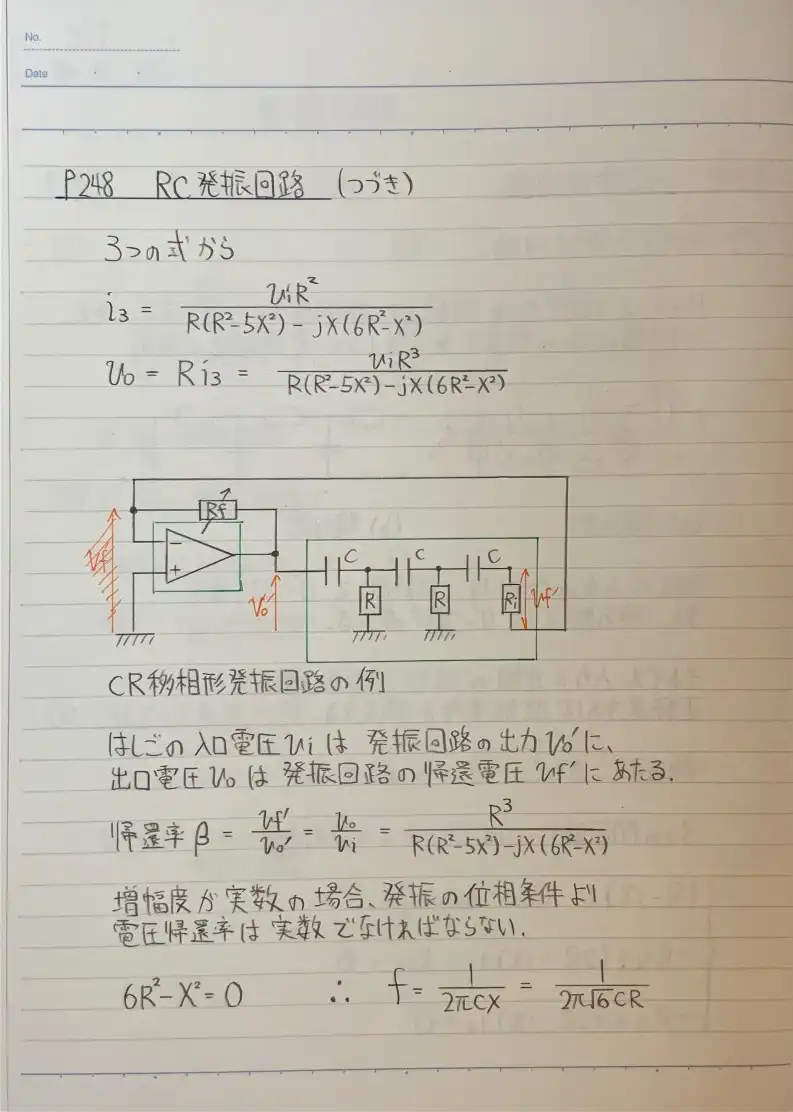 No.
Date
P248 RC発振回路 (つづき)
3つの式から
i₃ = viR² / R(R²-5X²) - jX(6R²-X²)
v₀ = Ri₃ = viR³ / R(R²-5X²)-jX(6R²-X²)
Rf
vf
-
+
C C C
v₀'
R R Ri vf'
CR移相形発振回路の例
はしごの入口電圧viは 発振回路の出力v₀'に、
出口電圧v₀は発振回路の帰還電圧vf'にあたる.
帰還率β = vf'/v₀' = v₀/vi = R³ / R(R²-5X²)-jX(6R²-X²)
増幅度が実数の場合、発振の位相条件より
電圧帰還率は実数でなければならない.
6R²-X²=0 ∴ f = 1/2πCX = 1/2π√6CR